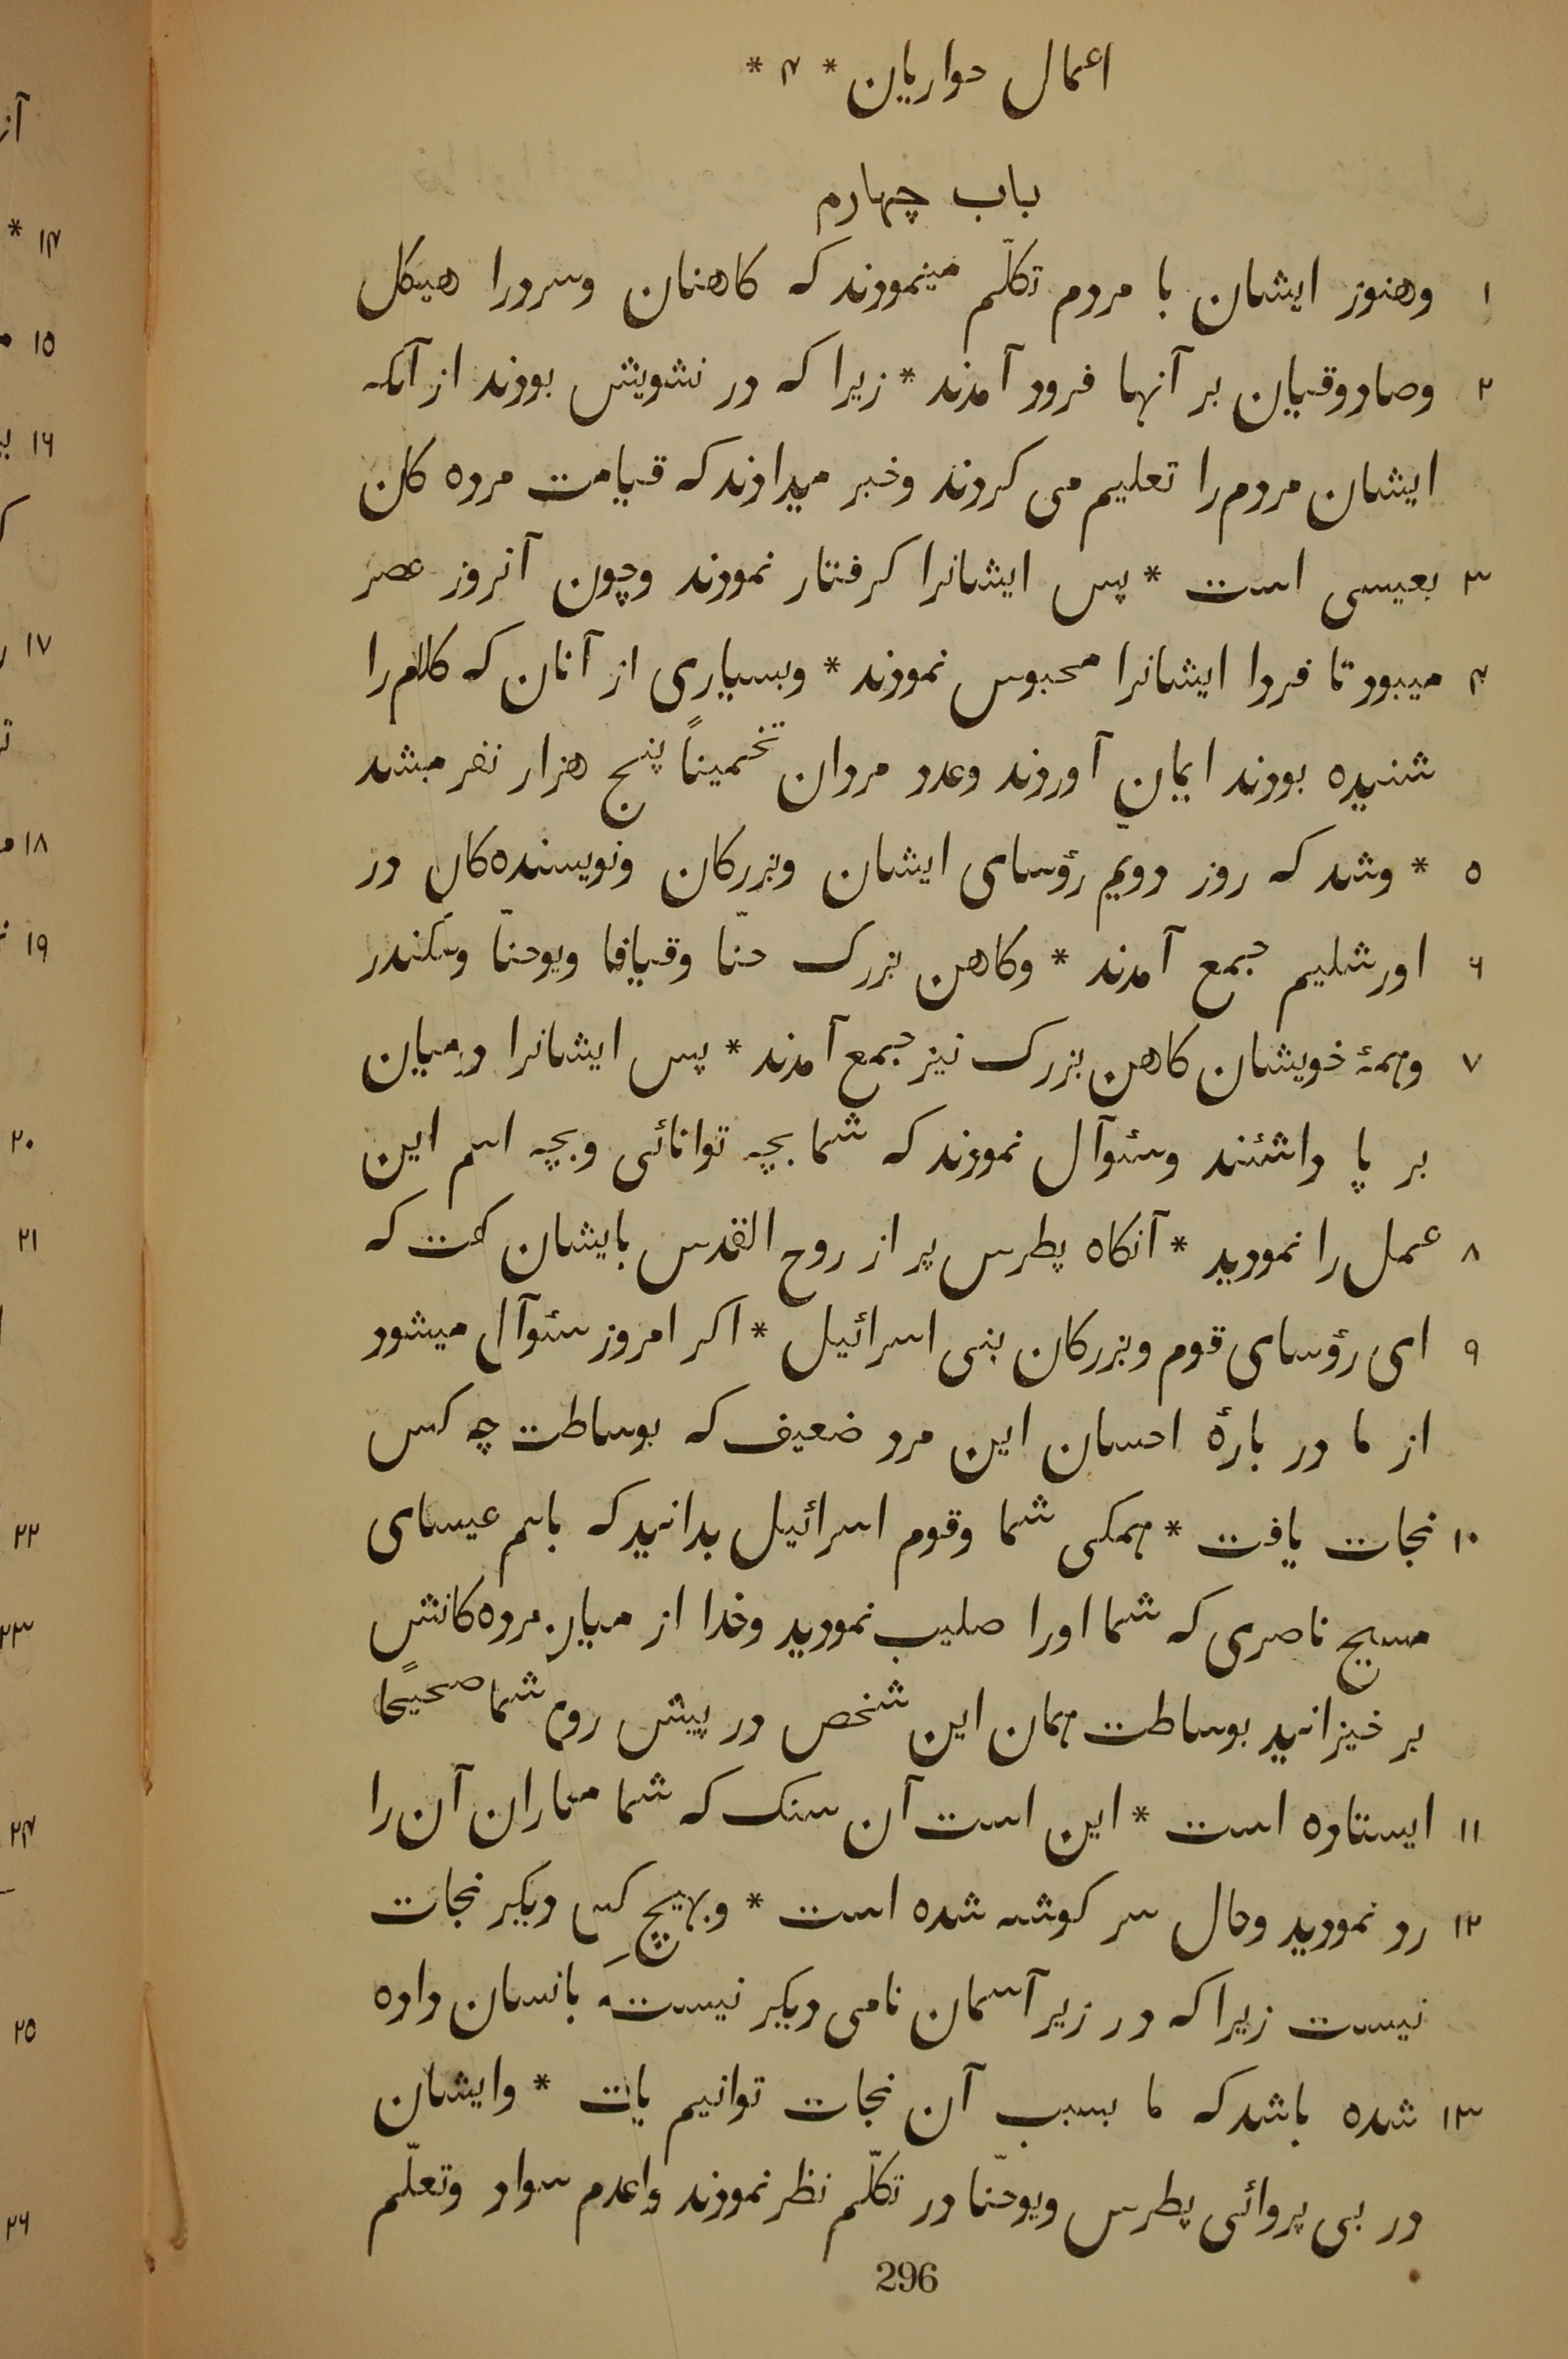 اعمال حواریان * ۴ *
باب چهارم
۱ وهنوز ایشان با مردم تکلّم مینمودند که کاهنان وسردرا هیکل
۲ وصادوقیان بر آنها فرود آمدند * زیرا که در تشویش بودند از آنکه
ایشان مردم را تعلیم می کردند وخبر میدادند که قیامت مرده کان
۳ بعیسی است * پس ایشانرا کرفتار نمودند وچون آنروز عصر
۴ میبود تا فردا ایشانرا محبوس نمودند * وبسیاری از آنان که کلام را
شنیده بودند ایمان آوردند وعدد مردان تخمیناً پنج هزار نفر میشد
۵ * وشد که روز دویم رؤسای ایشان وبزرکان ونویسنده کان در
۶ اورشلیم جمع آمدند * وکاهن بزرک حنّا وقیافا ویوحنّا وسکندر
۷ وهمهٔ خویشان کاهن بزرک نیز جمع آمدند * پس ایشانرا درمیان
بر پا داشتند وسئوآل نمودند که شما بچه توانائی وبچه اسم این
۸ عمل را نمودید * آنکاه پطرس پر از روح القدس بایشان کفت که
۹ ای رؤسای قوم وبزرکان بنی اسرائیل * اکر امروز سئوآل میشود
از ما در بارهٔ احسان این مرد ضعیف که بوساطت چه کس
۱۰ نجات یافت * همکی شما وقوم اسرائیل بدانید که باسم عیسای
مسیح ناصری که شما اورا صلیب نمودید وخدا از میان مرده کانش
بر خیزانید بوساطت همان این شخص در پیش روی شما صحیحًا
۱۱ ایستاده است * این است آن سنک که شما معماران آن را
۱۲ رد نمودید وحال سر کوشه شده است * وبهیچ کس دیکر نجات
نیست زیرا که در زیر آسمان نامی دیکر نیست که بانسان داده
۱۳ شده باشد که ما بسبب آن نجات توانیم یافت * وایشان
در بی پروائی پطرس ویوحنّا در تکلّم نظر نمودند واعدم سواد وتعلّم
296